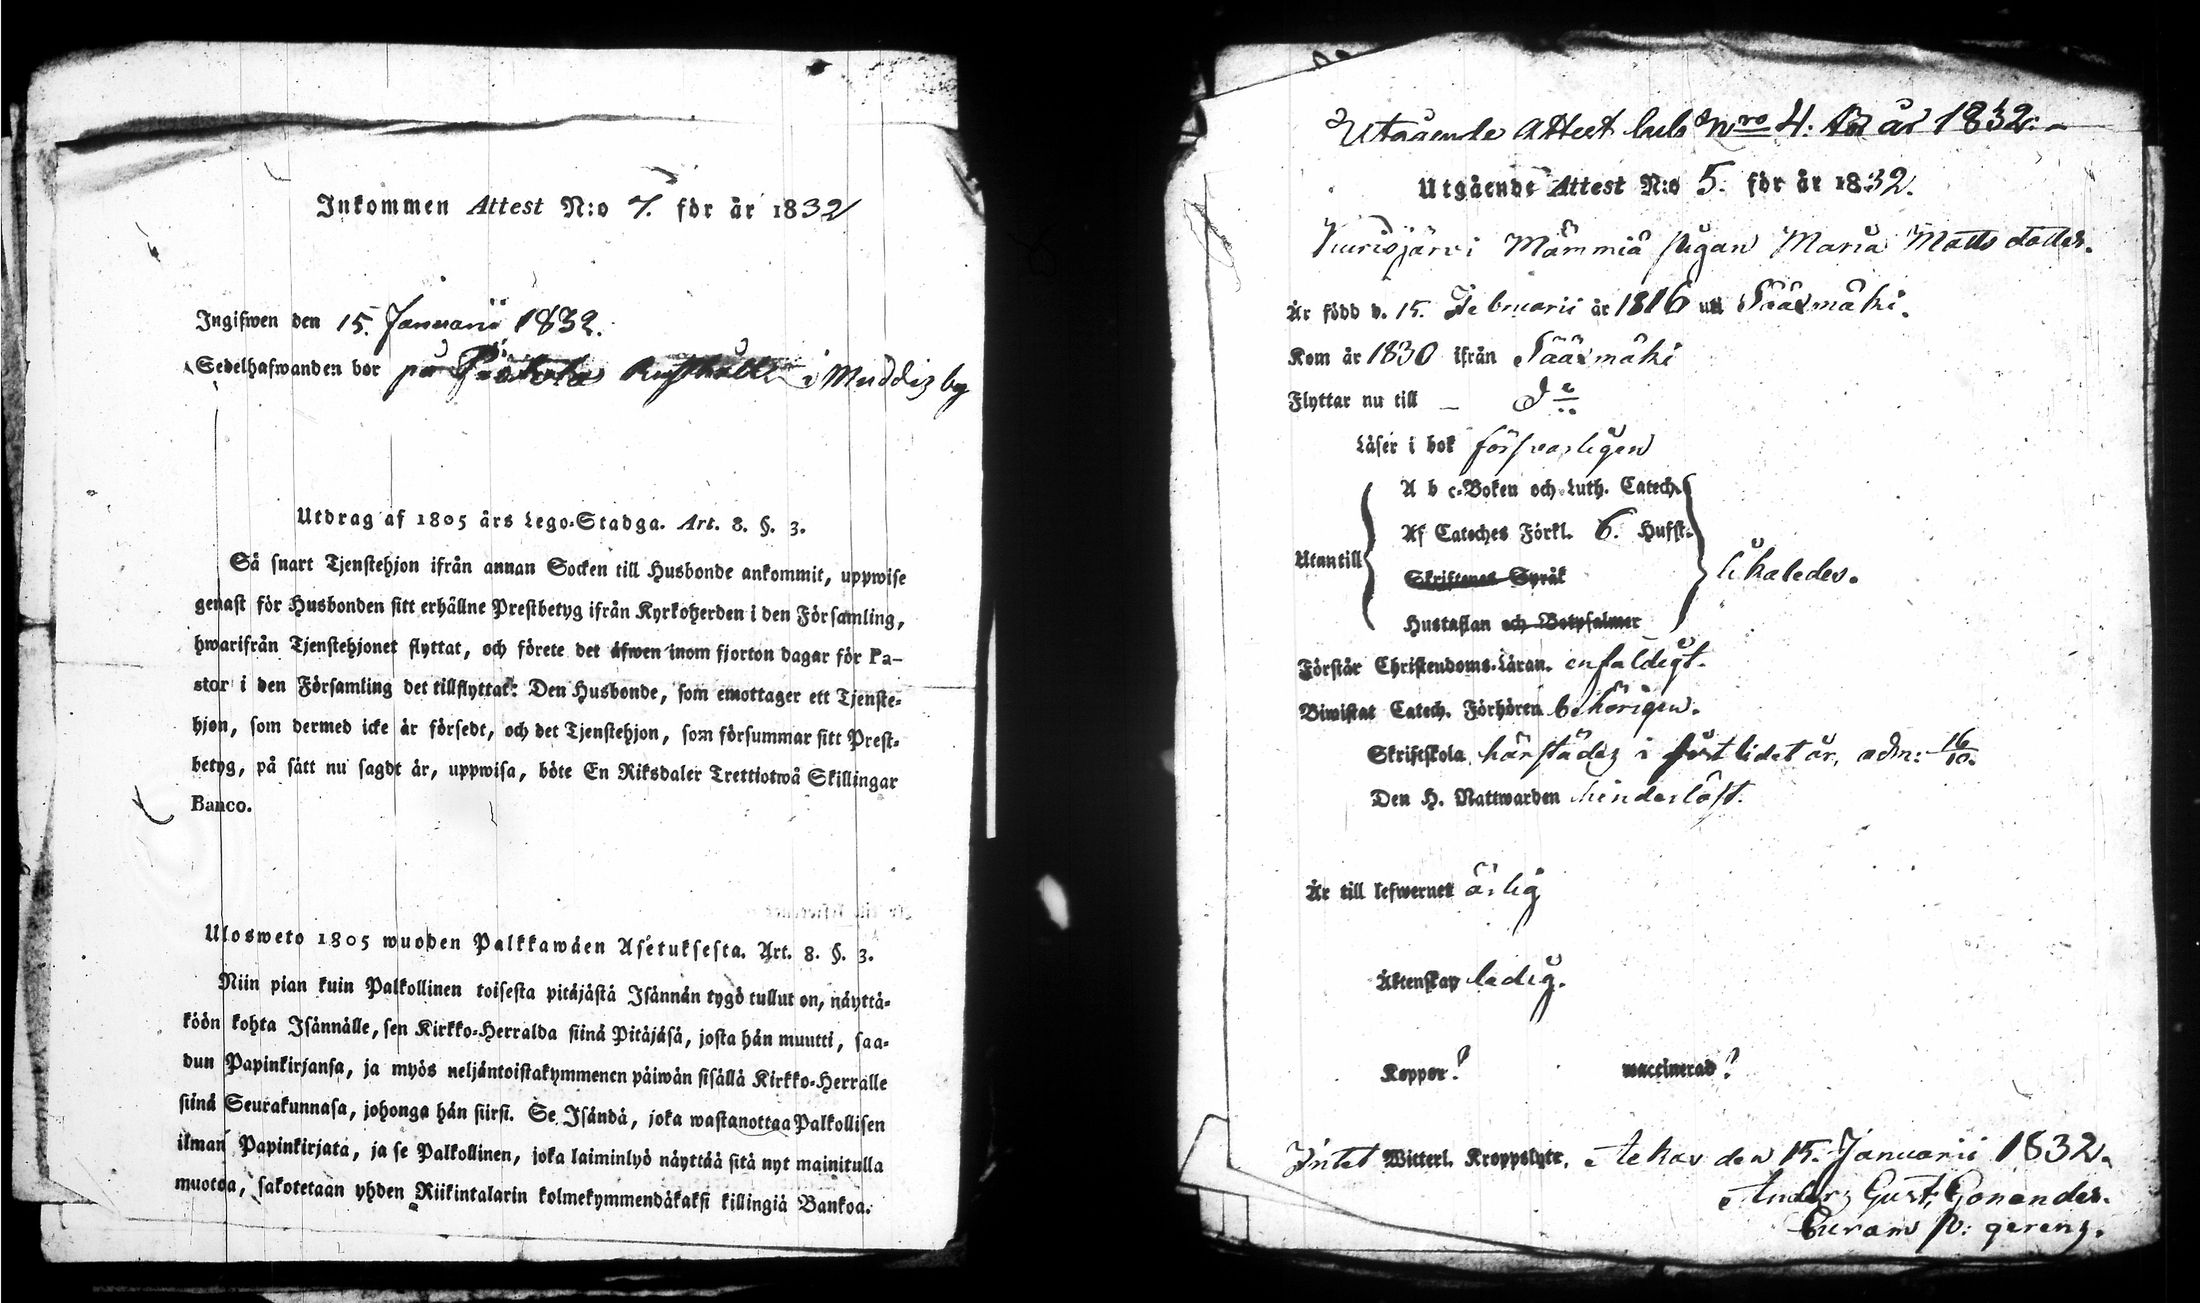 Inkommen Attest N:o 7. för år 1832
Ingifwen den 15. Januarii 1832.
Sedelhafwanden bor på Rusthåll i Muddis by
Utdrag af 1805 års Lego-Stadga. Art. 8. §. 3.
Så snart Tjenstehjon ifrån annan Socken till Husbonde ankommit, uppwise
genast för Husbonden sitt erhållne Prestbetyg ifrån Kyrkoherden i den Församling,
hwarifrån Tjenstehjonet flyttat, och förete det äfwen inom fjorton dagar för Pa-
stor i den Församling det tillflyttat: Den Husbonde, som emottager ett Tjenste-
hjon, som dermed icke är försedt, och det Tjenstehjon, som försummar sitt Prest-
betyg, på sätt nu sagdt är, uppwisa, böte En Riksdaler Trettiotwå Skillingar
Banco.
Ulosweto 1805 wuoden Palkkawäen Asetuksesta. Art. 8. §. 3.
Niin pian kuin Palkollinen toisesta pitäjästä Isännän tygö tullut on, näyttä-
köön kohta Isännälle, sen Kirkko-Herralda siinä Pitäjäsä, josta hän muutti, saa-
dun Papinkirjansa, ja myös neljäntoistakymmenen päiwän sisällä Kirkko-Herralle
siinä Seurakunnasa, johonga hän siirsi. Se Isändä, joka wastanottaa Palkollisen
ilman Papinkirjata, ja se Palkollinen, joka laiminlyö näyttää sitä nyt mainitulla
muotoa, sakotetaan yhden Riikintalarin kolmekymmendäkaksi killingiä Bankoa.
Utgående Attest sub Nro 4. för år 1832.
Utgående Attest N:o 5. för år 1832.
Kurisjärvi Mämmiä pigan Maria Matts dotter.
Är född d. 15. Februarii år 1816 uti Sääxmäki.
Kom år 1830 ifrån Sääxmäki
Flyttar nu till — Do
Läser i bok försvarligen
A b c-Boken och Luth. Catech.
Af Cateches Förkl. 6. Hufst.
Utantill Skriftenes Språk likaledes.
Hustaflan och Botpsalmer
Förstår Christendoms-Läran. enfaldigt.
Biwistat Catech. Förhören behörigen.
Skriftskola härstädes i förstlidet år, adm: 16/10.
Den H. Nattwarden hinderlöst.
Är till lefwernet ärlig
Äktenskap ledig.
Koppor? waccinerad?
Intet Witterl. Kroppslyte. Ackas den 15. Januarii 1832.
Anders Gust. Gonander.